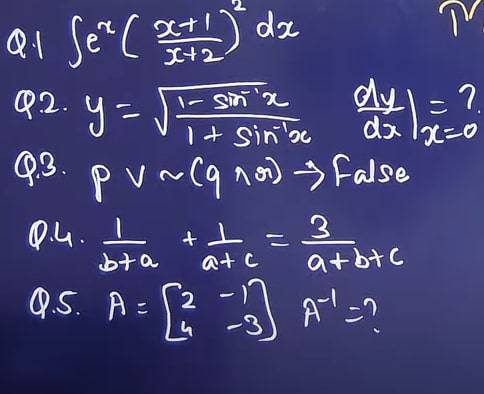 Q.1 ∫eˣ ( (x+1)/(x+2) )² dx
Q.2. y = √((1 - sin⁻¹x)/(1 + sin⁻¹x)) dy/dx |x=0 = ?
Q.3. p ∨ ~(q ∧ r) → False
Q.4. 1/(b+a) + 1/(a+c) = 3/(a+b+c)
Q.5. A = [2 -1; 4 -3] A⁻¹ = ?